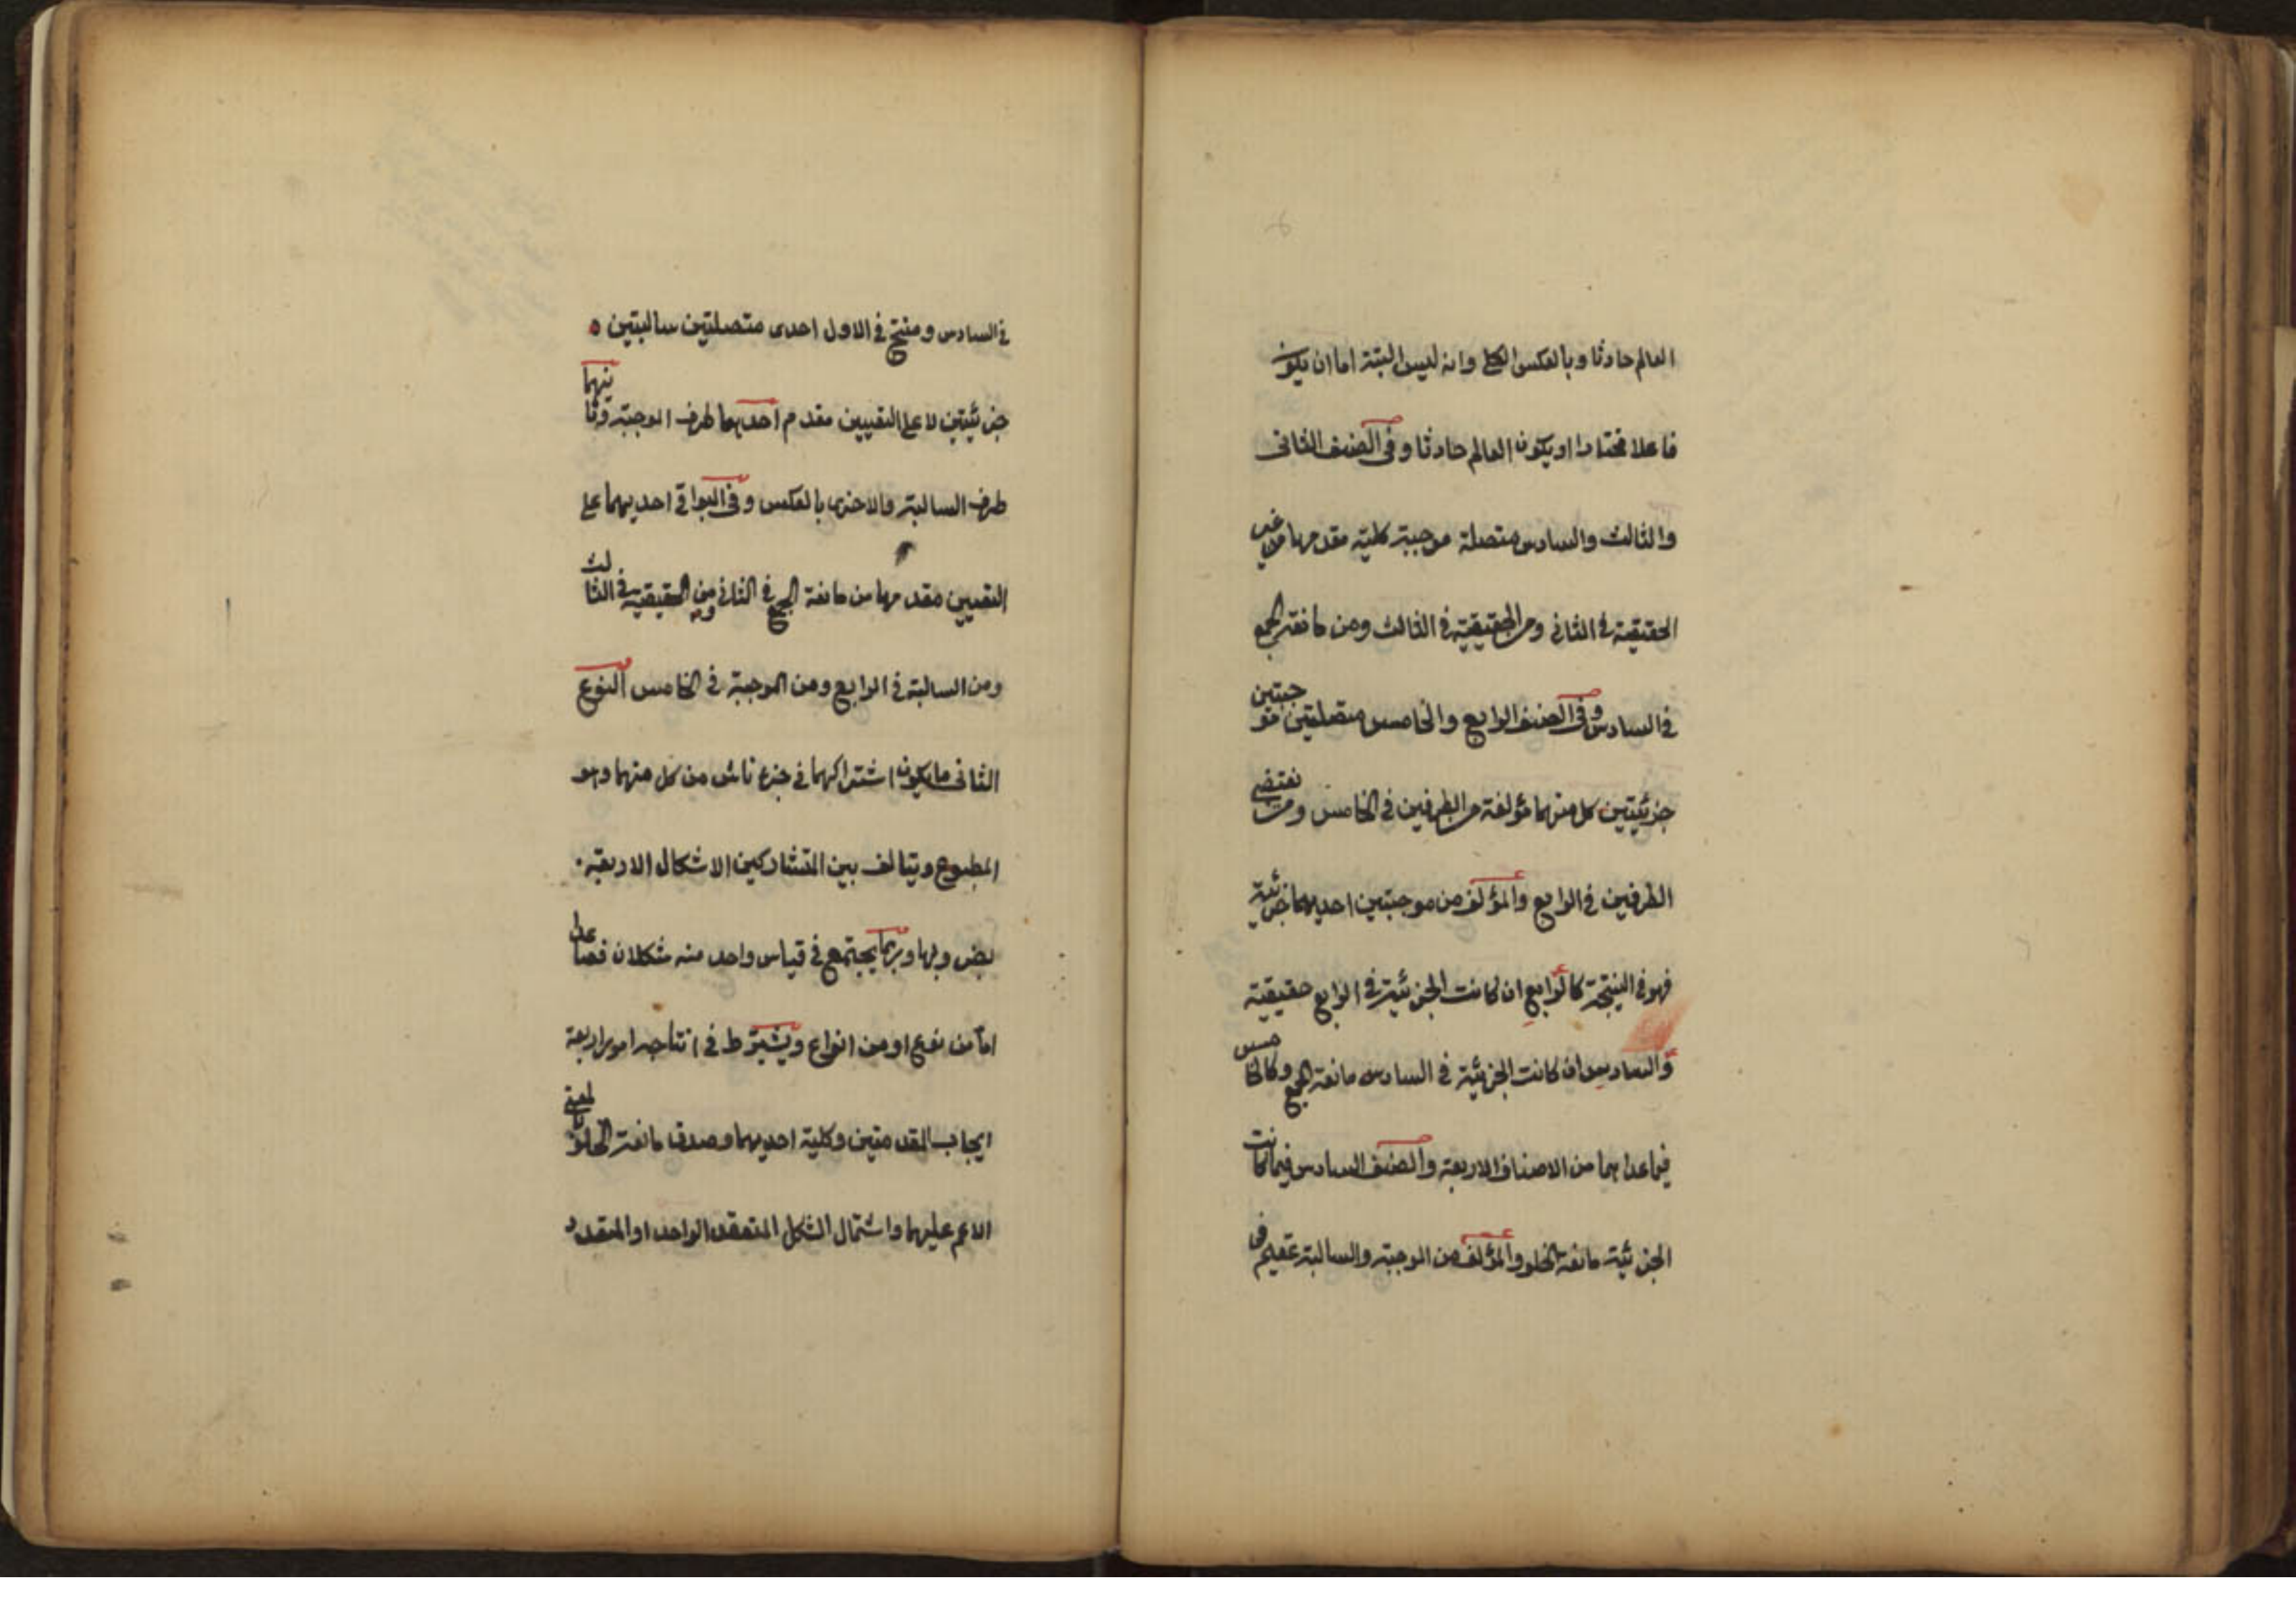 العالم حادثا وبالعكس الكلي وانه ليس البتة اما ان يكون
فاعلا مختارا او يكون العالم حادثا وفى الصنف الثانى
والثالث والسادس متصلة موجبة كلية مقدمها من غير
الحقيقية فى الثانى ومن الحقيقية فى الثالث ومن مانعة الجمع
فى السادس وفى الصنف الرابع والخامس متصلتين موجبتين
جزئيتين كل منهما مؤلفة من الطرفين فى الخامس ومن نقيضى
الطرفين فى الرابع والمؤلف من موجبتين احديهما جزئية
فهو فى النتيجة كالرابع ان كانت الجزئية فى الرابع حقيقية
والسادس ان كانت الجزئية فى السادس مانعة الجمع وكالخامس
فيما عداهما من الاصناف الاربعة والصنف السادس فيما كانت
الجزئية مانعة الخلو والمؤلف من الموجبة والسالبة عقيم فى
فى السادس ومنتج فى الاول احدى متصلتين سالبتين
جزئيتين لا على التعيين مقدم احديهما طرف الموجبة وتاليهما
طرف السالبة والاخرى بالعكس وفى البواقى احديهما على
التعيين مقدمها من مانعة الجمع فى الثانى ومن الحقيقية فى الثالث
ومن السالبة فى الرابع ومن الموجبة فى الخامس النوع
الثانى ما يكون اشتراكهما فى جزء ناقص من كل منهما وهو
المطبوع ويتالف بين المتشاركين الاشكال الاربعة
بضروبها وربما يجتمع فى قياس واحد منه شكلان فصاعدا
اما من نوع او من انواع ويشترط فى انتاجه امور اربعة
ايجاب المقدمتين وكلية احديهما وصدق مانعة الخلو بالمعنى
الاعم عليهما واشتمال الشكل المنعقد الواحد او المتعدد